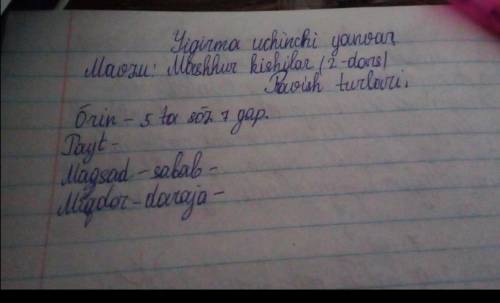 Yigirma uchinchi yanvar
Mavzu: Mashhur kishilar (2-dars)
Ravish turlari.
Õrin - 5 ta sõz 7 gap.
Payt -
Maqsad - sabab -
Miqdor - daraja -